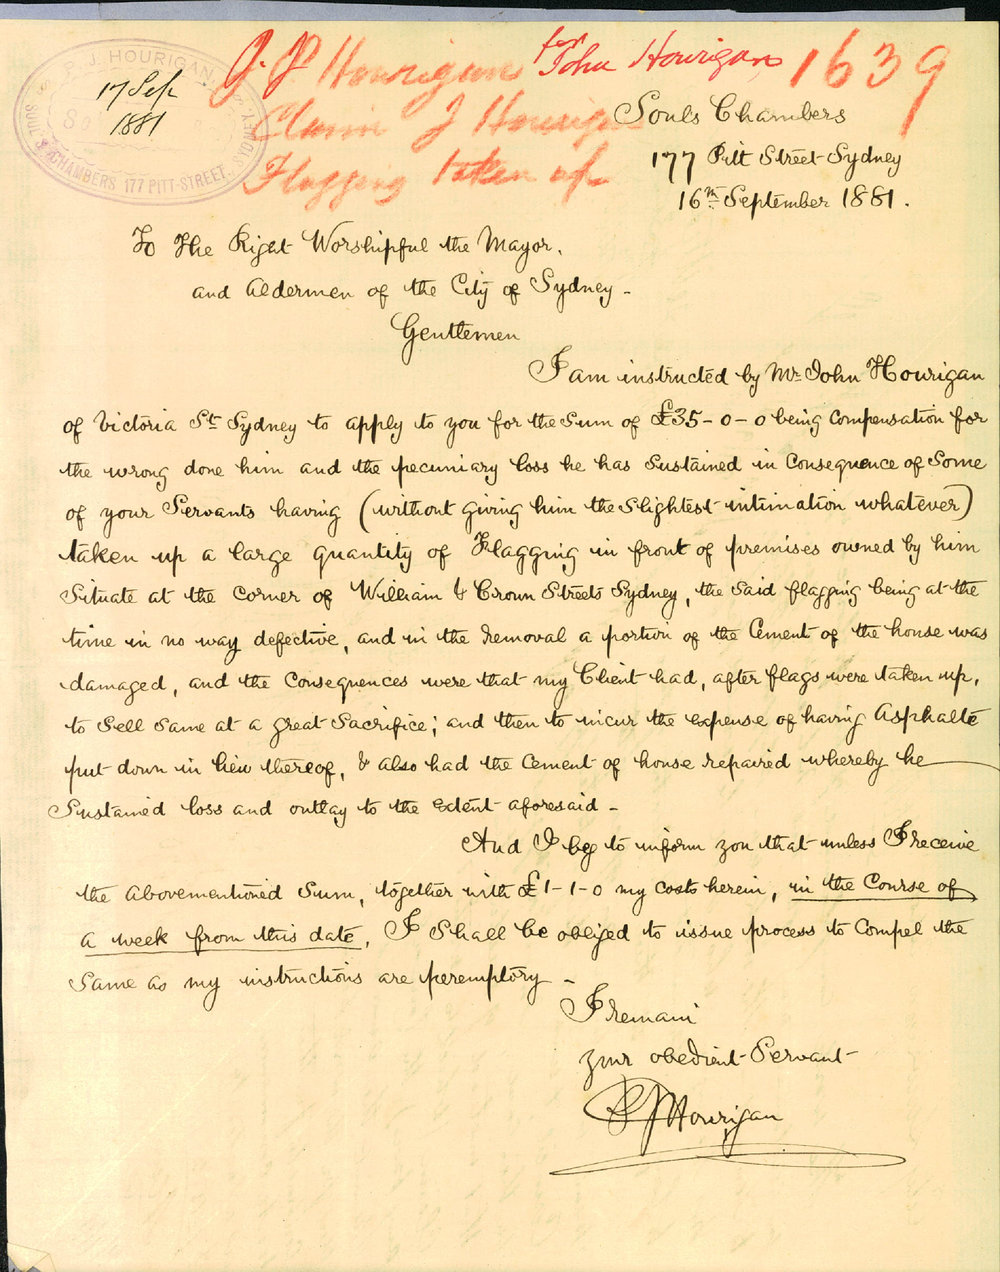 P. J. HOURIGAN.
SOUL'S CHAMBERS 177 PITT-STREET. SYDNEY.
17 Sep
1881
J. P Hourigan for John Hourigan 1639
Claim J Hourigan
Flagging taken up
Souls Chambers
177 Pitt Street Sydney
16th September 1881.
To The Right Worshipful the Mayor,
and Aldermen of the City of Sydney -
Gentlemen
I am instructed by Mr John Hourigan
of Victoria St Sydney to apply to you for the Sum of £35-0-0 being Compensation for
the wrong done him and the pecuniary loss he has Sustained in Consequence of Some
of your Servants having (without giving him the Slightest intimation whatever)
taken up a large quantity of Flagging in front of premises owned by him
Situate at the corner of William & Crown Streets Sydney, the Said flagging being at the
time in no way defective, and in the removal a portion of the Cement of the house was
damaged, and the Consequences were that my Client had, after flags were taken up,
to Sell Same at a great Sacrifice; and then to incur the expense of having Asphalte
put down in lieu thereof, & also had the Cement of house repaired whereby he
Sustained loss and outlay to the extent aforesaid -
And I beg to inform you that unless I receive
the abovementioned Sum, together with £1-1-0 my Costs herein, in the Course of
a week from this date, I Shall be obliged to issue process to Compel the
Same as my instructions are peremptory -
I remain
your obedient Servant
P J Hourigan